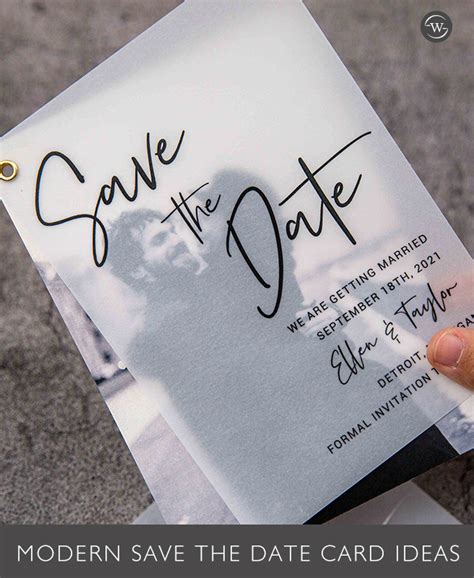 W
Save
the
Date
WE ARE GETTING MARRIED
SEPTEMBER 18TH, 2021
Ellen & Taylor
DETROIT,
FORMAL INVITATION
MODERN SAVE THE DATE CARD IDEAS